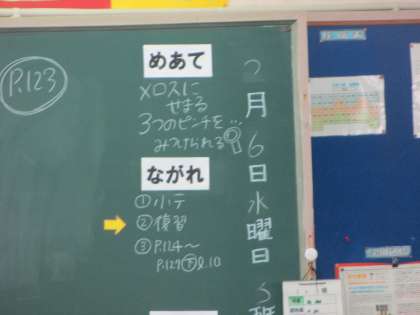 P.123
めあて
メロスに
せまる
3つのピンチを…
みつけられる
ながれ
①小テ
②復習
③P.124〜
P.127下l.10
月
6
日
水
曜
日